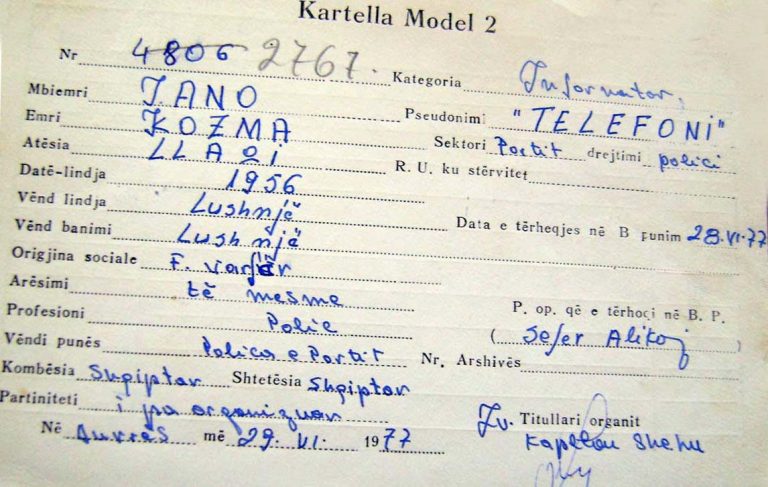 Kartella Model 2
Nr 4806 2767. Kategoria Informator,
Mbiemri JANO Pseudonimi "TELEFONI"
Emri KOZMA Sektori Portit drejtimi polici
Atësia LLAQI R. U. ku stërvitet
Datë-lindja 1956
Vënd lindja Lushnjë Data e tërheqjes në B punim 28.VI.77
Vënd banimi Lushnjë
Origjina sociale F. varfër
Arësimi të mesme
Profesioni Polic P. op. që e tërhoqi në B. P.
Vëndi punës Polic e Portit (Sefer Alikoj)
Nr. Arshivës
Kombësia Shqiptar Shtetësia Shqiptar
Partiniteti i pa organizuar Zv. Titullari organit
Në Durrës më 29. VI. 1977 Kapllan Shehu